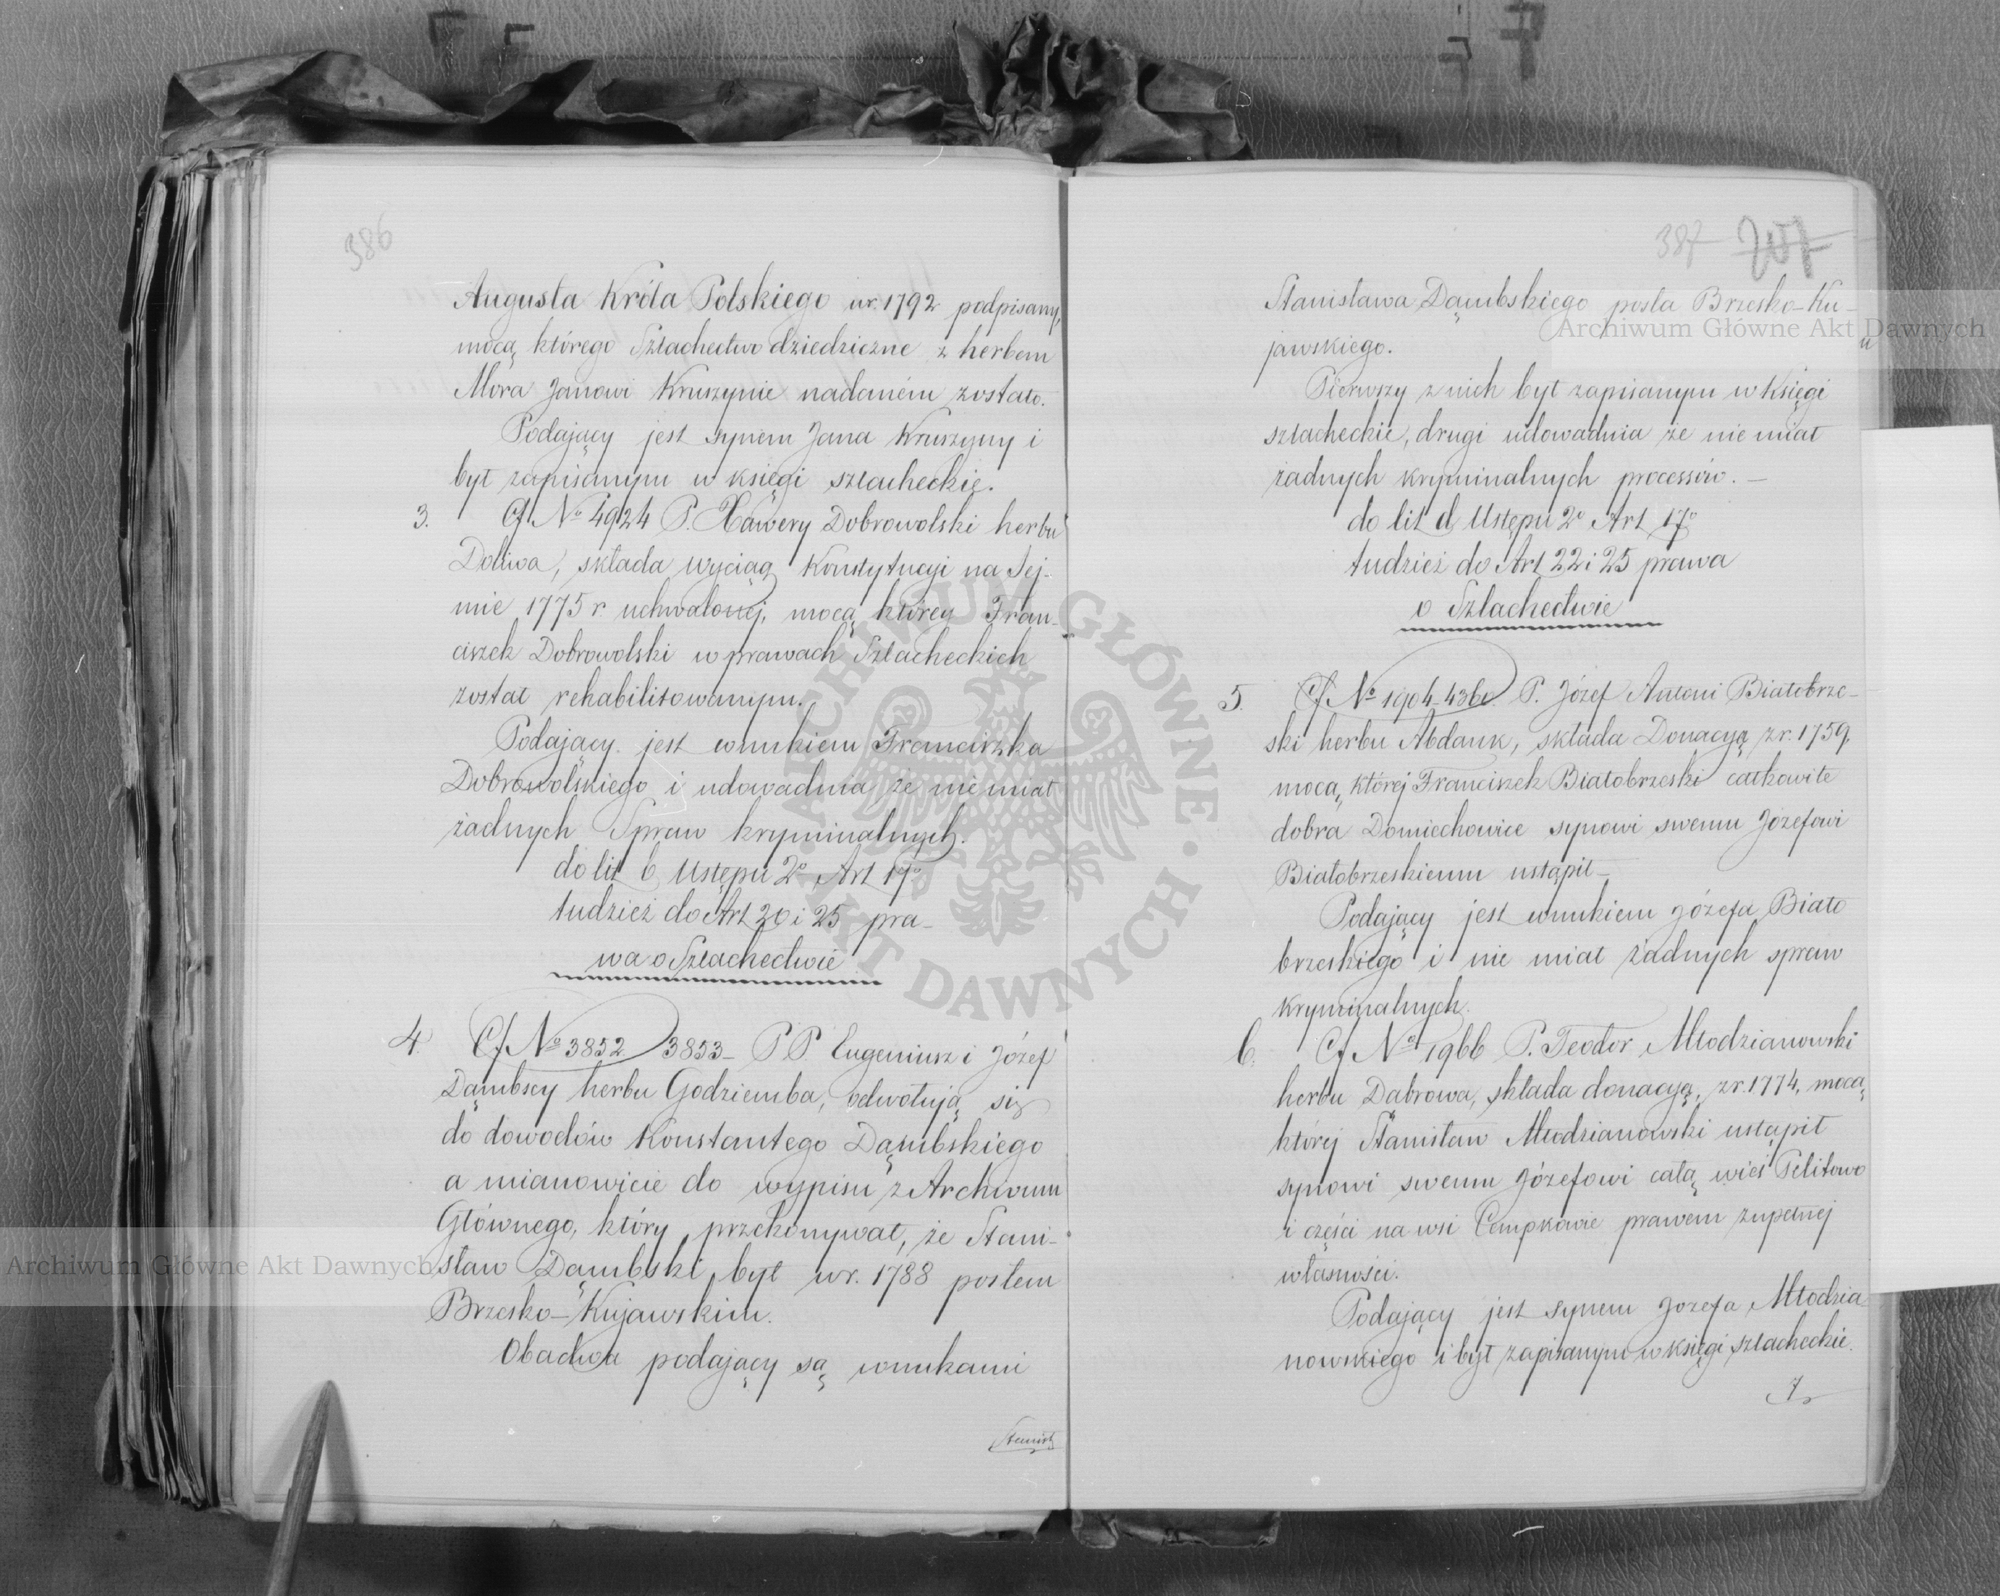 386
Augusta Króla Polskiego w r. 1792 podpisany,
mocą którego Szlachectwo dziedziczne z herbem
Mora Janowi Kruszynie nadaném zostało.
Podający jest synem Jana Kruszyny i
był zapisanym w księgi szlacheckie.
3. Cf No 4924 P. Xawery Dobrowolski herbu
Doliwa, składa wyciąg Konstytucyi na Sej-
mie 1775 r. uchwalonej, mocą której Fran-
ciszek Dobrowolski w prawach Szlacheckich
został rehabilitowanym.
Podający jest wnukiem Franciszka
Dobrowolskiego i udowadnia że nie miał
żadnych Spraw kryminalnych.
do lit b Ustępu 2o Art 17o
tudzież do Art 20 i 25 pra-
wa o Szlachectwie
4. Cf No 3852 3853 - P.P. Eugeniusz i Józef
Dąmbscy herbu Godziemba, odwołują się
do dowodów Konstantego Dąmbskiego
a mianowicie do wypisu z Archiwum
Głównego, który przekonywał, że Stani-
sław Dąmbski był w r. 1788 posłem
Brzesko-Kujawskim.
Obadwa podający są wnukami
Stanisł
387 207
Stanisława Dąmbskiego posła Brzesko-Ku-
jawskiego.
Pierwszy z nich był zapisanym w Księgi
szlacheckie, drugi udowadnia że nie miał
żadnych kryminalnych processów. -
do lit d Ustępu 2o Art 17o
tudzież do Art 22 i 25 prawa
o Szlachectwie
5. Cf No 1904-4360 P. Józef Antoni Białobrze-
ski herbu Abdank, składa Donacyą z r. 1759.
mocą której Franciszek Białobrzeski całkowite
dobra Domiechowice synowi swemu Józefowi
Białobrzeskiemu ustąpił -
Podający jest wnukiem Józefa Biało
brzeskiego i nie miał żadnych spraw
kryminalnych.
6. Cf No 1966 P. Teodor Młodzianowski
herbu Dąbrowa, składa donacyą, z r. 1774, mocą
której Stanisław Młodzianowski ustąpił
synowi swemu Józefowi całą wieś Pelitowo
i części na wsi Cempkowie prawem zupełnej
własności.
Podający jest synem Józefa Młodzia-
nowskiego i był zapisanym w księgi szlacheckie.
7.
ARCHIWUM GŁÓWNE AKT DAWNYCH
Archiwum Główne Akt Dawnych
Archiwum Główne Akt Dawnych